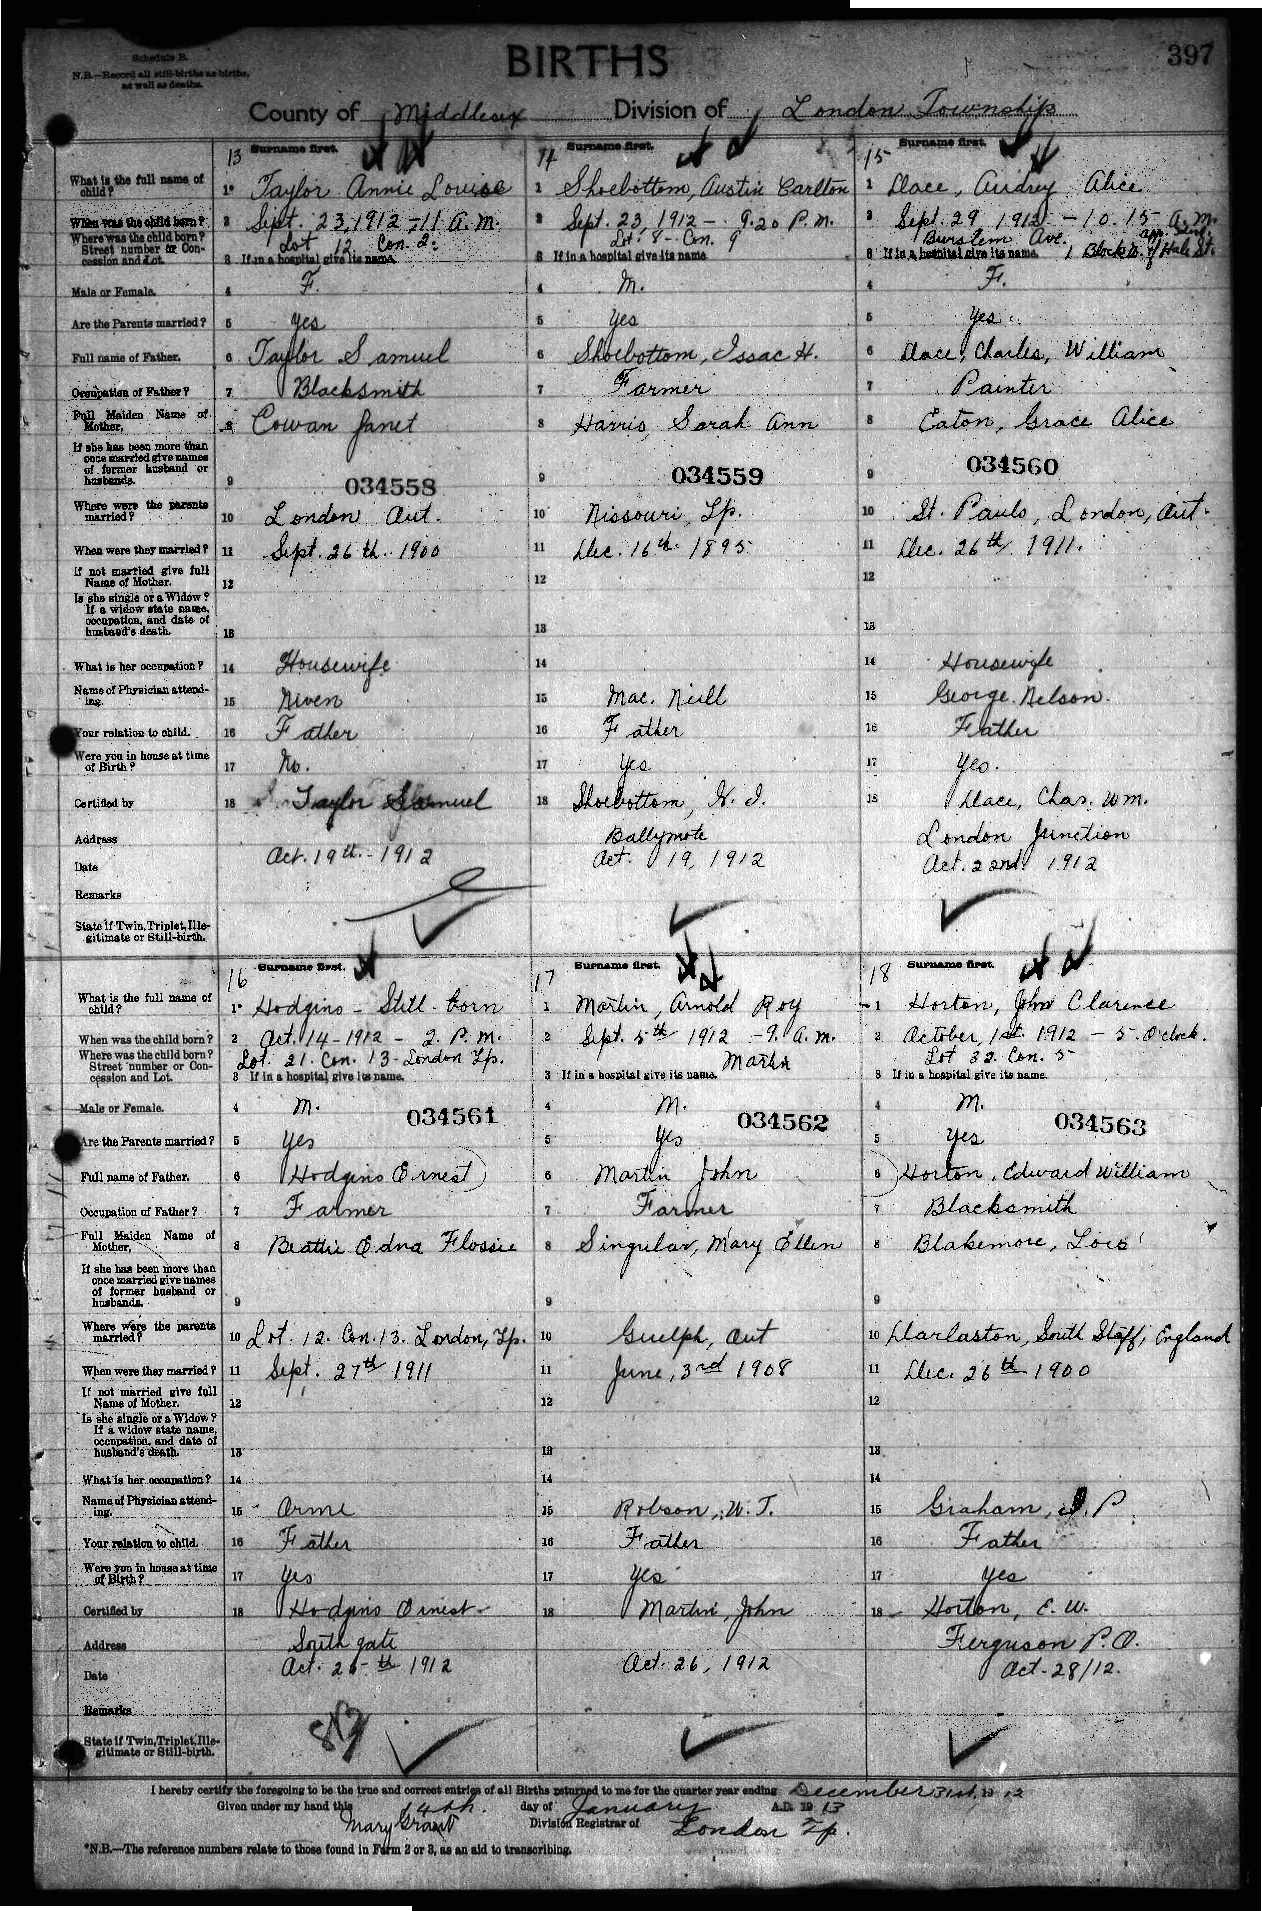 Schedule B.
N.B.—Record all still-births as births, as well as deaths.
BIRTHS
397
County of Middlesex Division of London Township
13 Surname first. 14 Surname first. 15 Surname first.
What is the full name of child? 1* Taylor Annie Louise 1 Shoebottom, Austin Carlton 1 Dace, Audrey Alice
When was the child born? 2 Sept. 23, 1912 - 11 A.M. 2 Sept. 23, 1912 - 9.20 P.M. 2 Sept. 29 1912 - 10.15 A.M.
Where was the child born? Street number or Concession and Lot. Lot 12 Con. 2. Lot 8 - Con. 9 Burslem Ave.
3 If in a hospital give its name. 3 If in a hospital give its name 3 If in a hospital give its name. 1 Block of Hale St.
Male or Female. 4 F. 4 M. 4 F.
Are the Parents married? 5 Yes 5 Yes 5 Yes
Full name of Father. 6 Taylor Samuel 6 Shoebottom, Issac H. 6 Dace, Charles, William
Occupation of Father? 7 Blacksmith 7 Farmer 7 Painter
Full Maiden Name of Mother, 8 Cowan Janet 8 Harris, Sarah Ann 8 Eaton, Grace Alice
If she has been more than once married give names of former husband or husbands. 9 034558 9 034559 9 034560
Where were the parents married? 10 London Ont. 10 Nissouri, Tp. 10 St. Pauls, London, Ont.
When were they married? 11 Sept. 26th. 1900 11 Dec. 16th 1895 11 Dec. 26th 1911.
If not married give full Name of Mother. 12 12 12
Is she single or a Widow? If a widow state name, occupation, and date of husband's death. 13 13 13
What is her occupation? 14 Housewife 14 14 Housewife
Name of Physician attending. 15 Niven 15 Mac. Neill 15 George Nelson.
Your relation to child. 16 Father 16 Father 16 Father
Were you in house at time of Birth? 17 No. 17 Yes 17 Yes.
Certified by 18 Taylor Samuel 18 Shoebottom, 18 Dace, Chas. Wm.
Address Ballymote London Junction
Date Oct. 19th - 1912 Oct. 19, 1912 Oct. 22nd 1912
Remarks
State if Twin, Triplet, Illegitimate or Still-birth.
16 Surname first. 17 Surname first. 18 Surname first.
What is the full name of child? 1* Hodgins - Still-born 1 Martin, Arnold Roy 1 Horton, John Clarence
When was the child born? 2 Oct. 14 - 1912 - 2 P.M. 2 Sept. 5th 1912 - 9. A.M. 2 October, 1st 1912 - 5. O'clock.
Where was the child born? Street number or Concession and Lot. Lot. 21. Con. 13 - London Tp. Martin Lot 32. Con. 5
3 If in a hospital give its name. 3 If in a hospital give its name. 3 If in a hospital give its name.
Male or Female. 4 M. 034561 4 M. 034562 4 M. 034563
Are the Parents married? 5 Yes 5 Yes 5 Yes
Full name of Father. 6 Hodgins Ernest 6 Martin John 6 Horton, Edward William
Occupation of Father? 7 Farmer 7 Farmer 7 Blacksmith
Full Maiden Name of Mother, 8 Beattie Edna Flossie 8 Singular, Mary Ellen 8 Blakemore, Lois
If she has been more than once married give names of former husband or husbands. 9 9 9
Where were the parents married? 10 Lot. 12. Con. 13. London, Tp. 10 Guelph, Ont 10 Darlaston, South Staff, England
When were they married? 11 Sept. 27th 1911 11 June, 3rd 1908 11 Dec. 26th 1900
If not married give full Name of Mother. 12 12 12
Is she single or a Widow? If a widow state name, occupation, and date of husband's death. 13 13 13
What is her occupation? 14 14 14
Name of Physician attending. 15 Orme 15 Robson, W. T. 15 Graham, P
Your relation to child. 16 Father 16 Father 16 Father
Were you in house at time of Birth? 17 Yes 17 Yes 17 Yes
Certified by 18 Hodgins Ernest 18 Martin, John 18 Horton, E. W.
Address Southgate Ferguson P.O.
Date Oct. 1912 Oct. 26, 1912 Oct. 28/12.
Remarks
State if Twin, Triplet, Illegitimate or Still-birth.
I hereby certify the foregoing to be the true and correct entries of all Births returned to me for the quarter year ending December 31st, 1912
Given under my hand this 14th. day of January A.D. 1913
Mary Grant Division Registrar of London Tp.
*N.B.—The reference numbers relate to those found in Form 2 or 3, as an aid to transcribing.